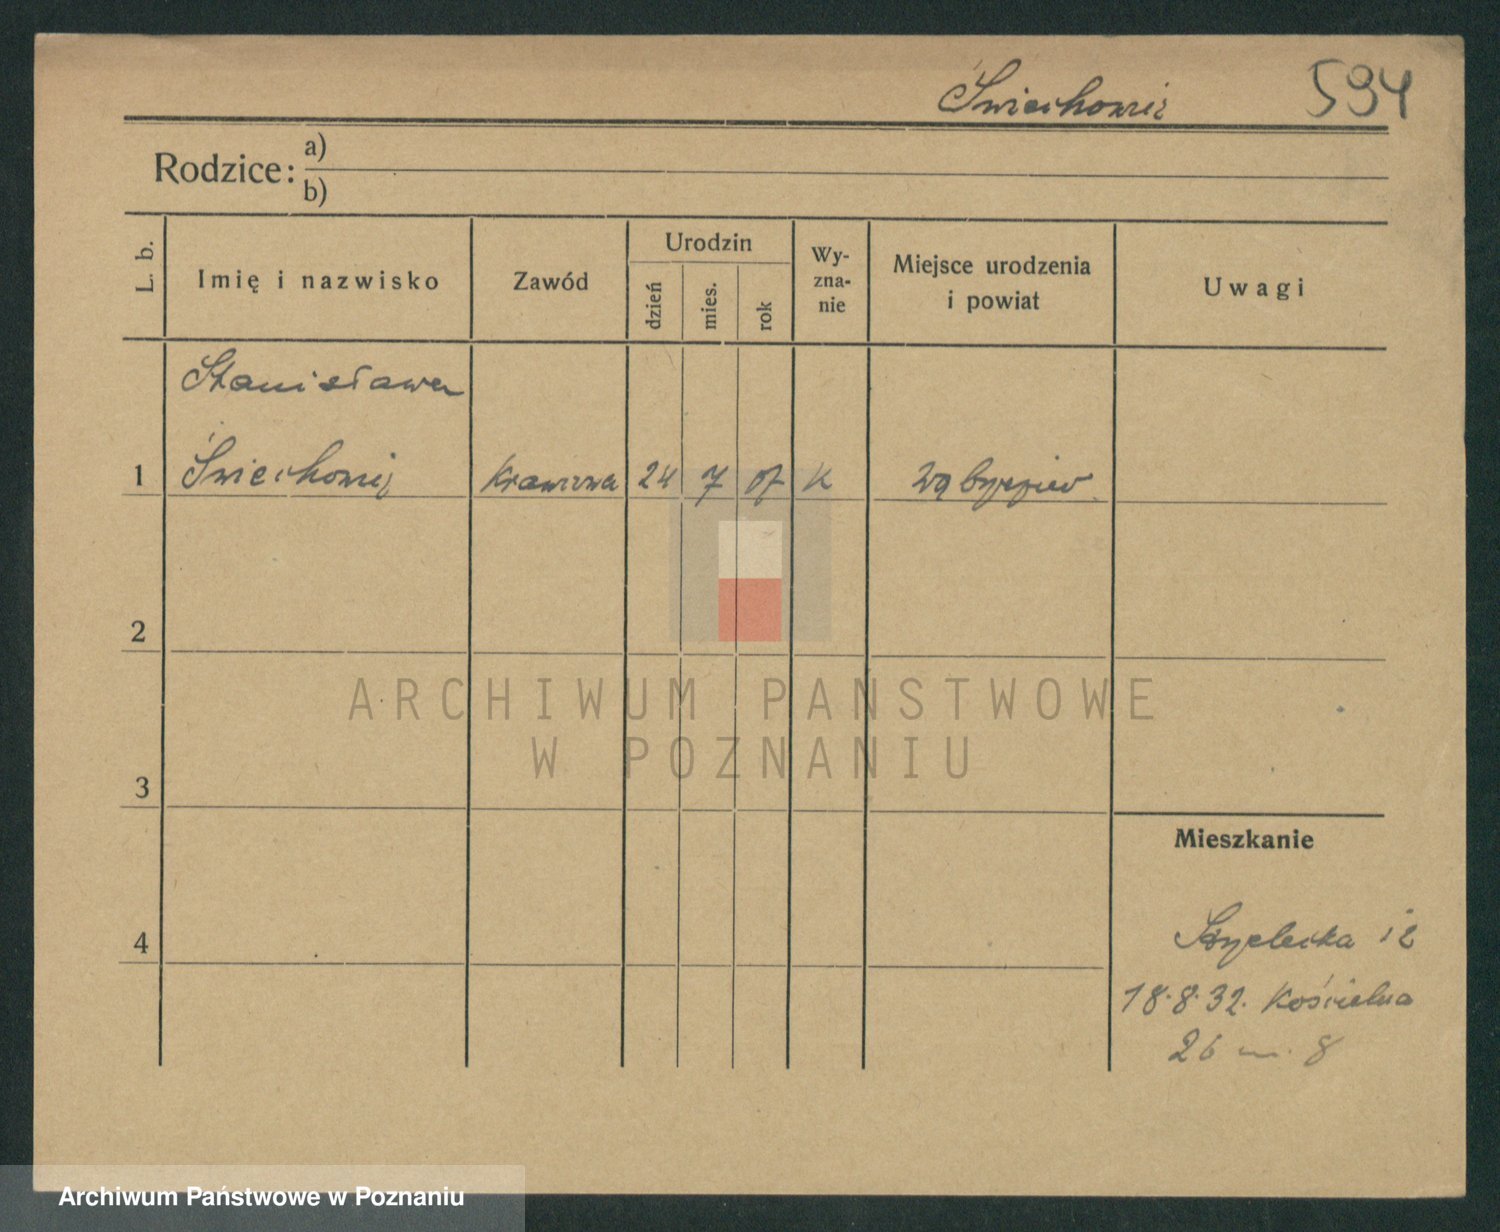 Świechowicz 594
Rodzice: a)
b)
L. b. Imię i nazwisko Zawód Urodzin dzień mies. rok Wy-zna-nie Miejsce urodzenia i powiat Uwagi
Stanisława
1 Krawcowa 24 7 07 K
2
3
4
Mieszkanie
Strzelecka 12
18.8.32. Kościelna
26 m. 8
ARCHIWUM PAŃSTWOWE
W POZNANIU
Archiwum Państwowe w Poznaniu